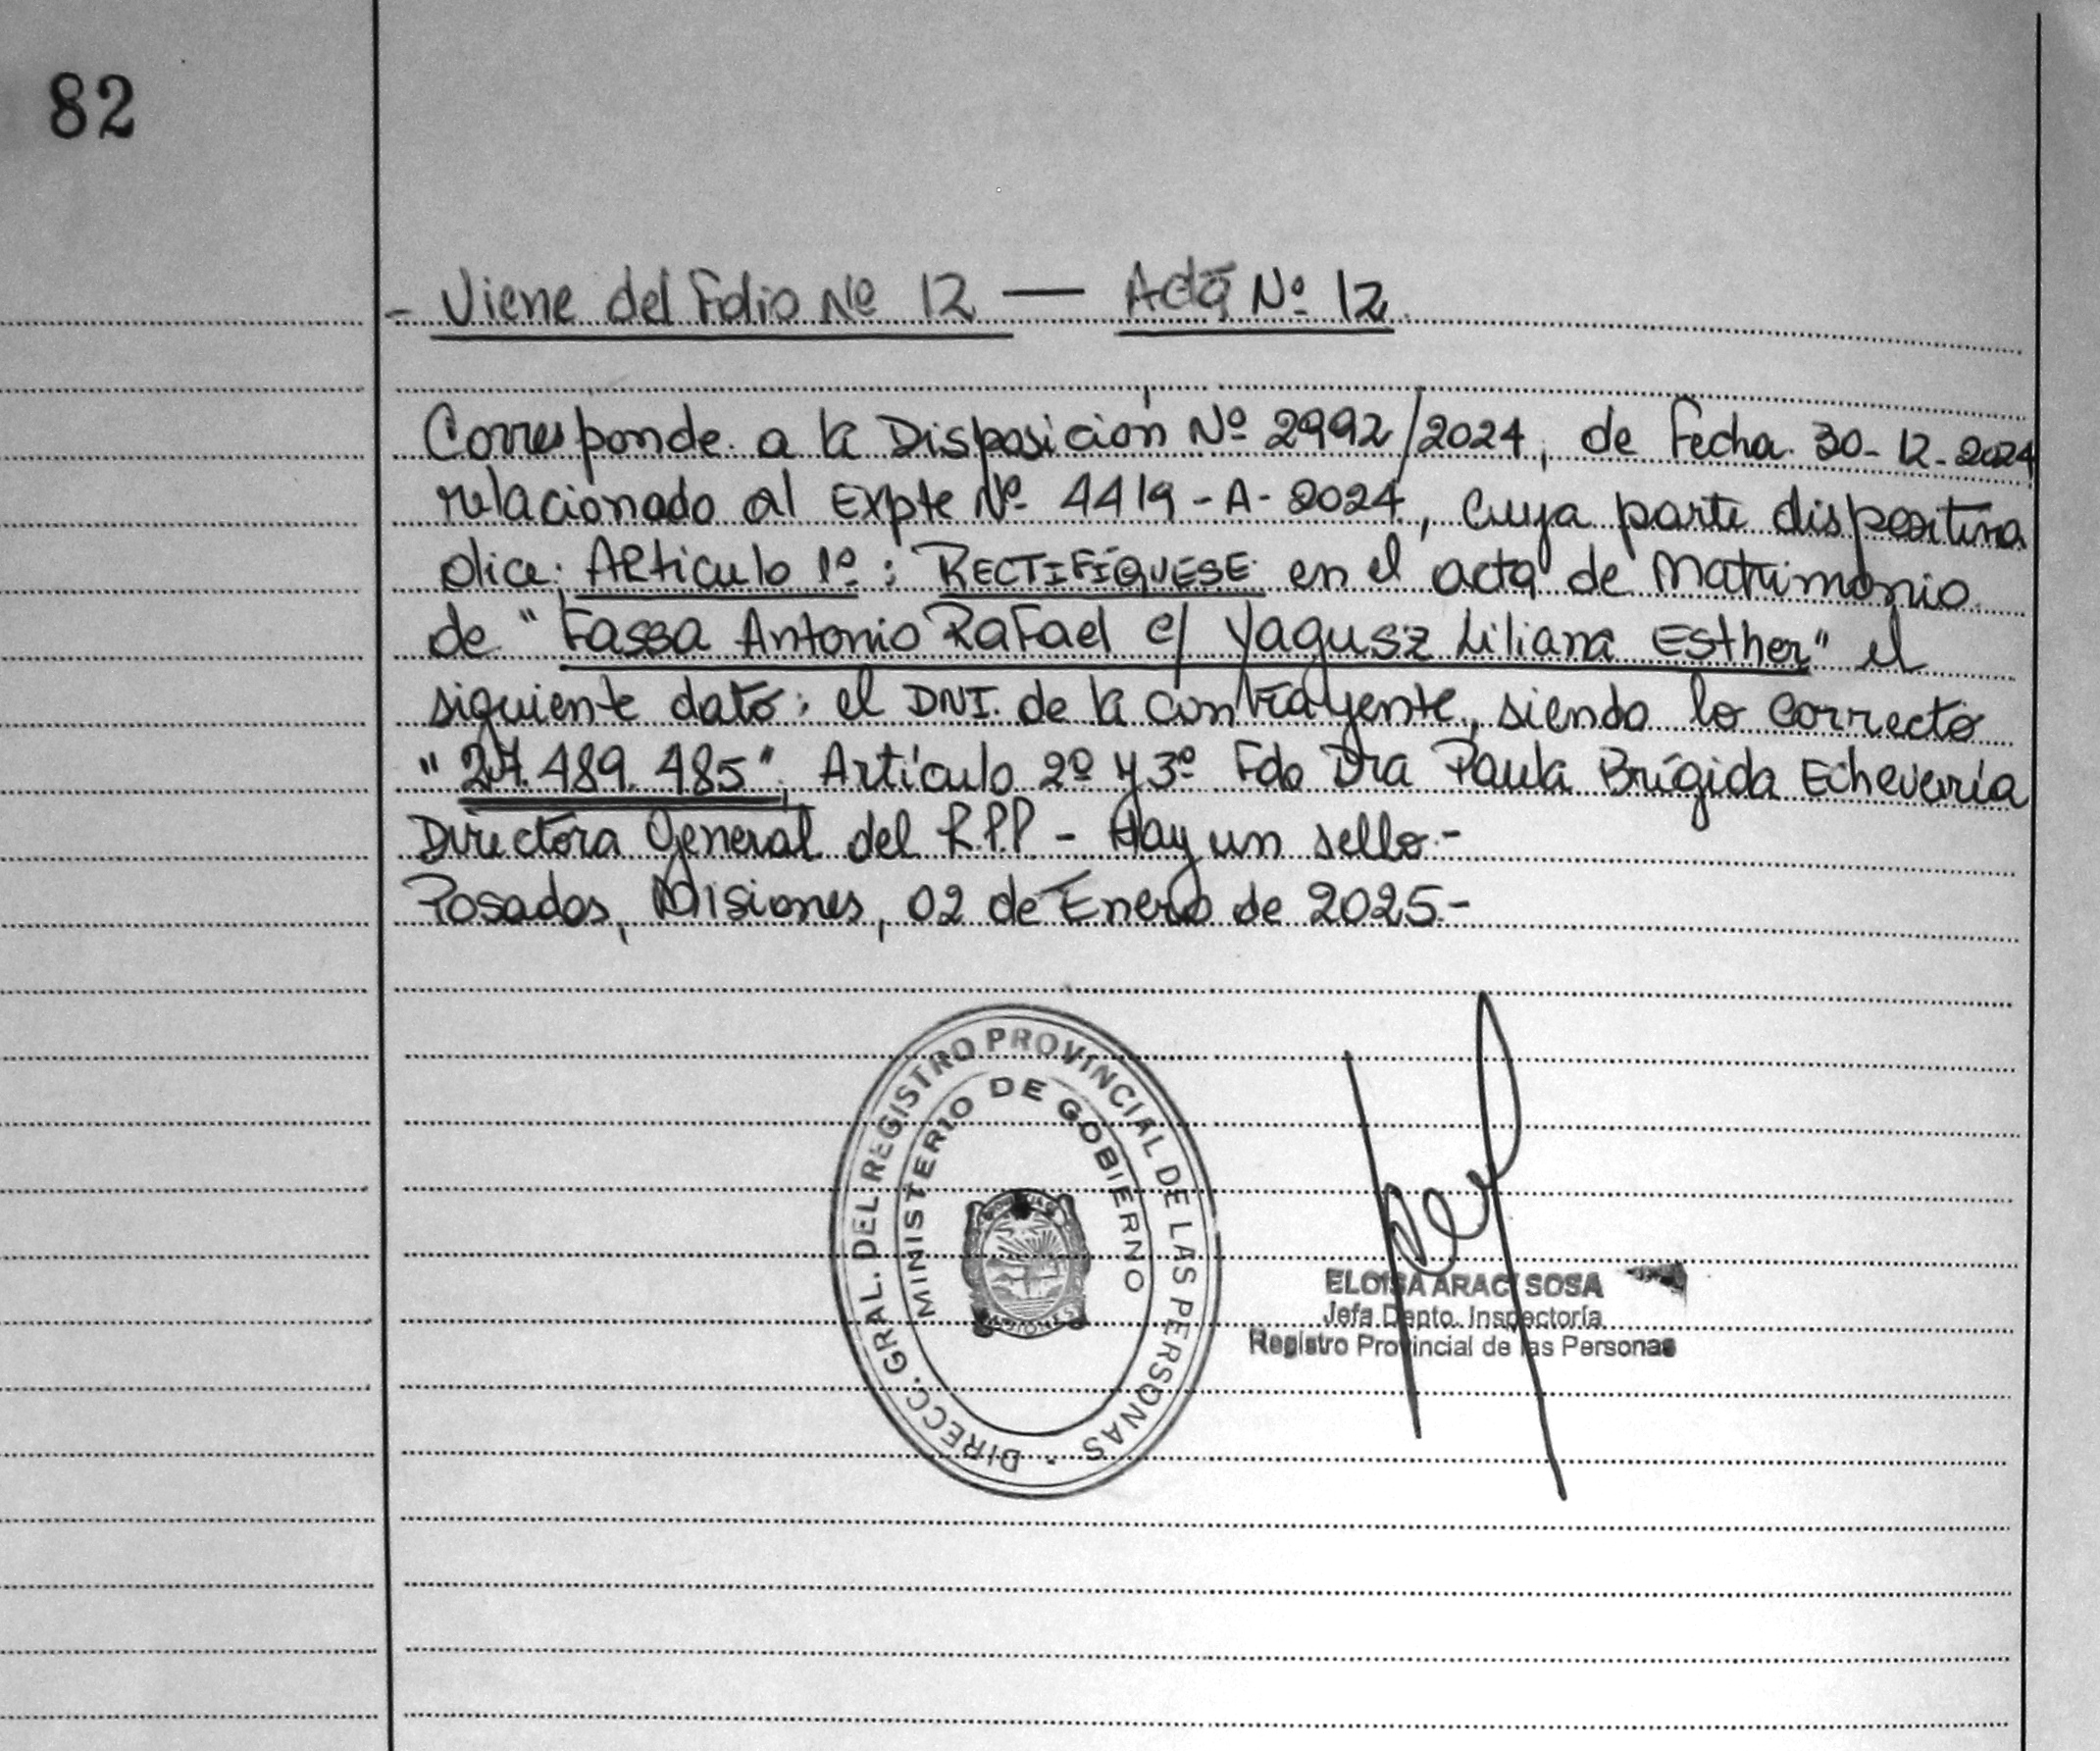 82
- Viene del Folio Nº 12 — Acta Nº 12.
Corresponde a la Disposición Nº 2992/2024, de Fecha 30-12-2024
relacionado al Expte Nº 4419-A-2024, cuya parte dispositiva
dice: Artículo 1º: RECTIFÍQUESE en el acta de Matrimonio
de "Fassa Antonio Rafael c/ Yagusz Liliana Esther" el
siguiente dato: el DNI. de la contrayente, siendo lo correcto
"27.489.485", Artículo 2º y 3º Fdo Dra Paula Brígida Echeverría
Directora General del R.P.P - Hay un sello.-
Posadas, Misiones, 02 de Enero de 2025.-
DIRECC. GRAL. DEL REGISTRO PROVINCIAL DE LAS PERSONAS
MINISTERIO DE GOBIERNO
MISIONES
ELOISA ARACI SOSA
Jefa Depto. Inspectoría
Registro Provincial de las Personas